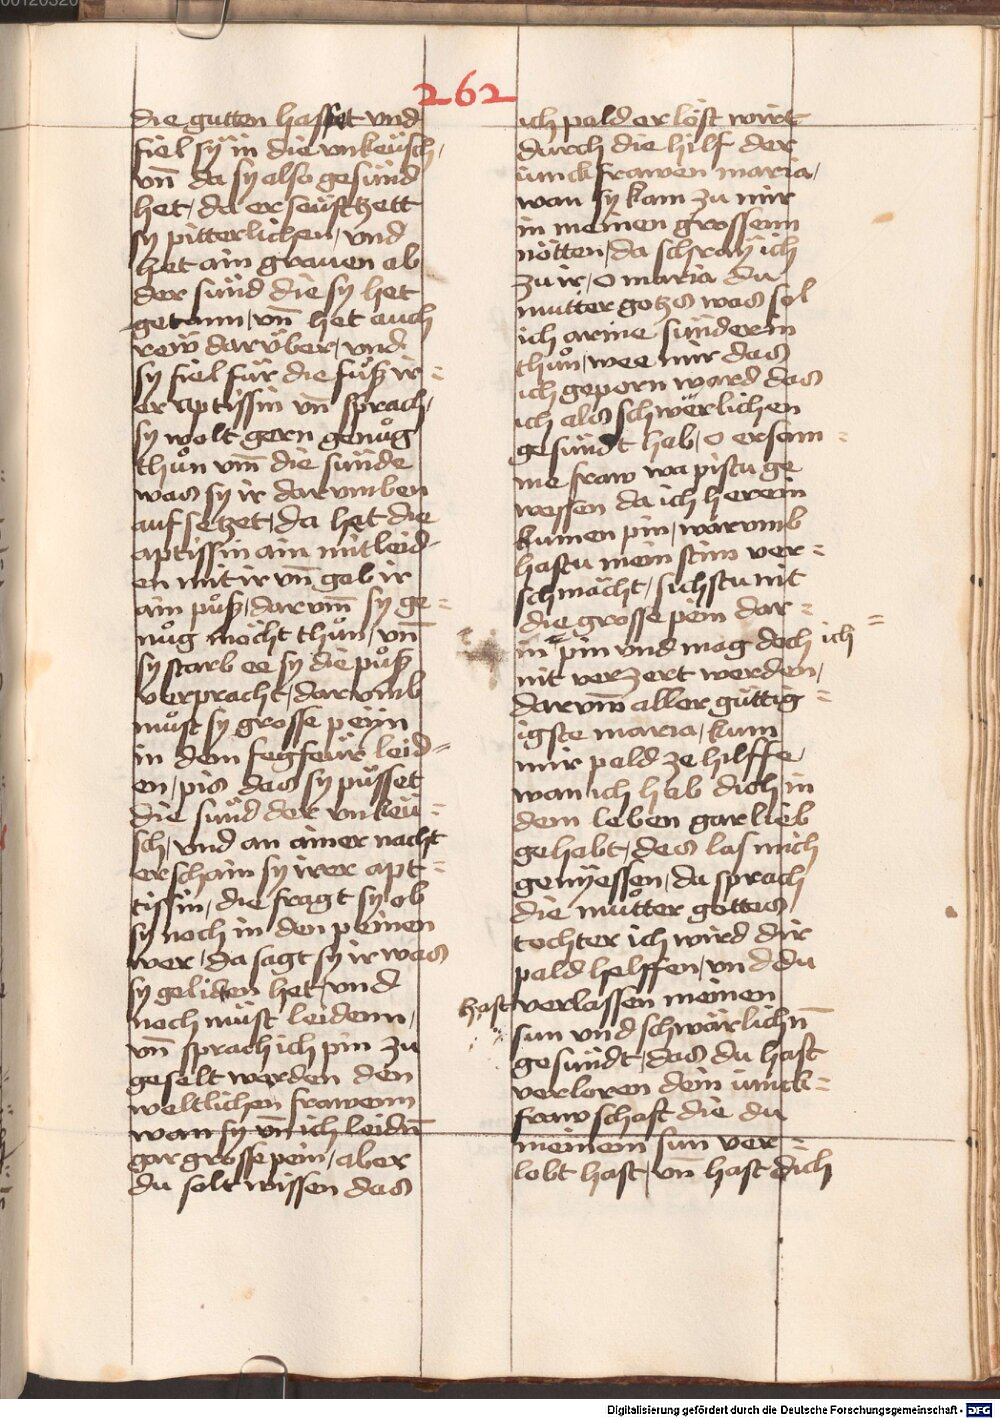 262
die gutten hasset vnd
fiel sÿ in die vnkeüsch,
vn̄ da sy also gesünd
het, da erseüftzett
sy pitterlichen, vnd
het ain grauen ab
der sünd die sy het
getann, vn̄ het auch
reẅ darv̈ber, vnd
sy fiel für die fu̇ͦß ir=
er aptissin vn̄ sprach,
sy wolt gern genuͦg
thuͦn vm̄ die sünde
was sy ir darvmben
auf setzet, da het die
aptissin ain mitleid-
en mit ir vn̄ geb ir
ain puͦß, darvm̄ sy ge=
nuͦg möcht thuͦn, vn̄
sy starb ee sy die puͦß
verpracht, darvmb
muͦst sy grosse peÿn
in dem fegfeür leid=
en, pis das sy pu̇ͦsset
die sünd der vnkeü=
sch, vnd an ainer nacht
erschain sy irer apt=
tissin, die fragt sy ob
sy noch in den peinen
wer, da sagt sy ir was
sy geliden het, vnd
noch müst leidenn,
vn̄ sprach ich pin zu
geselt worden den
weltlichen frawenn
wan sy vn ich leidn̄
gar grosse pein, aber
du solt wissen das
ich pald erlöst wirt
durch die hilf der
iunckfrawen maria,
wan sy kam zu mir
in meinen grossenn
nötten, da schraÿ ich
zu ir, o maria du
mutter gotzs was sol
ich arme sünderin
thuͦn, wee mir das
ich geporn ward das
ich also schwërlichen
gesündt hab, o ersam=
me fraw wa pistu ge
wessen da ich herein
kumen pin, warvmb
hastu mein stim ver=
schmächt, sichstu nit
die grosse pein dar=
in ich pin vnd mag doch ich=
nit verzert werden,
darvm̄ aller güttig=
igste maria, kum
mir pald ze hilffe,
wan ich hab dich in
dem leben gar lieb
gehabt, des las mich
genÿessen, da sprach
die muͦtter gottes,
tochter ich wird dir
pald helffen, vnd du
hast verlassen meinen
sun vnd schwärlichn̄
gesündt, das du hast
verloren dein iunck=
frawschaft die du
meinem sun ver=
lobt hast, vn̄ hast dich
Digitalisierung gefördert durch die Deutsche Forschungsgemeinschaft - DFG